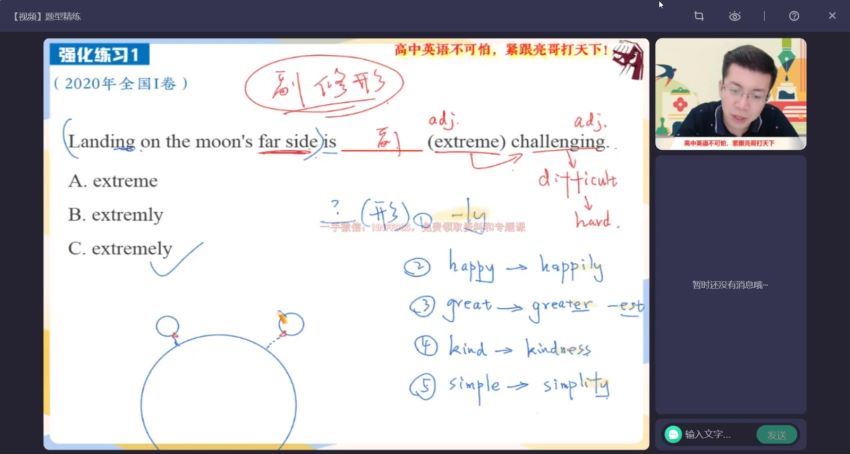 【视频】题型精练
强化练习1
高中英语不可怕，紧跟亮哥打天下！
（2020年全国I卷）
副 修 形
adj.
adj.
Landing on the moon's far side is 副 (extreme) challenging.
A. extreme
difficult
B. extremly
? (形) ① -ly
hard.
C. extremely
② happy → happily
③ great → greater -est
④ kind → kindness
⑤ simple → simplify
高中英语不可怕，紧跟亮哥打天下
暂时还没有消息哦~
输入文字...
发送